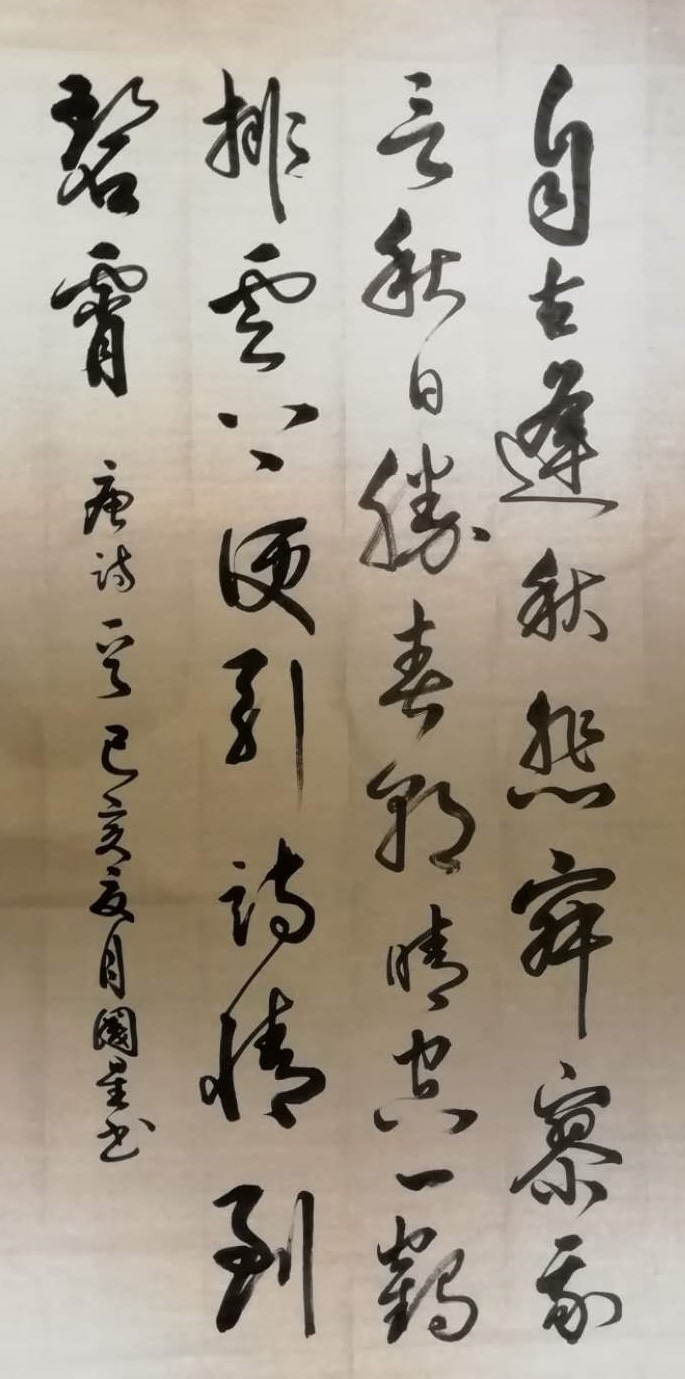 自古逢秋悲寂寥我
言秋日勝春朝晴空一鶴
排雲上便引詩情到
碧霄 唐詩一首己亥夏月國星書